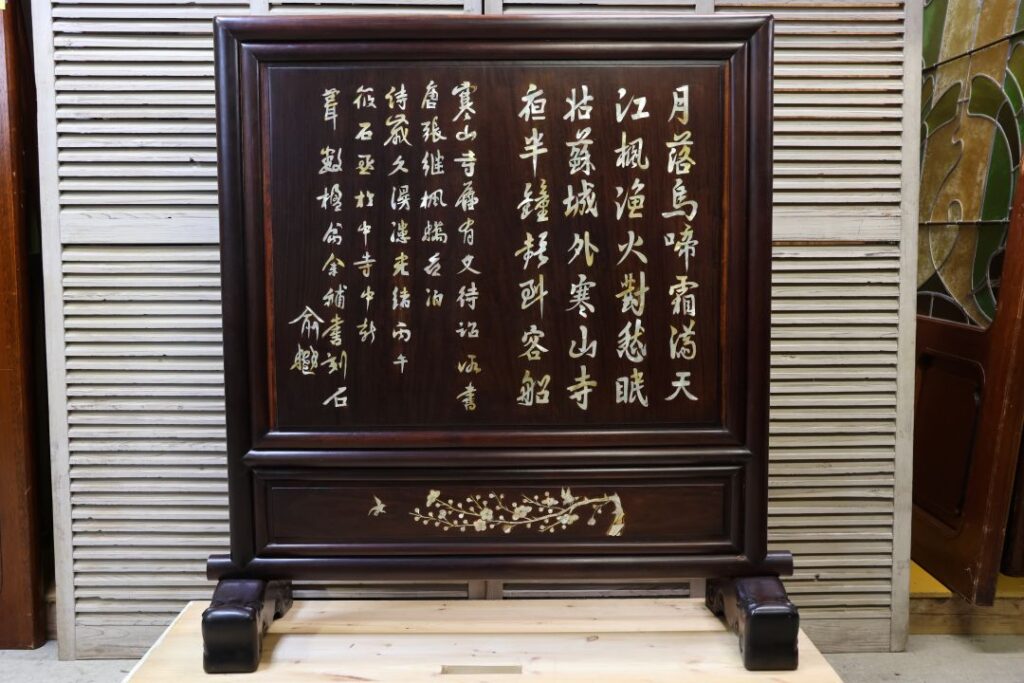 月落烏啼霜滿天
江楓漁火對愁眠
姑蘇城外寒山寺
夜半鐘聲到客船
寒山寺舊有文待詔所書
唐張繼楓橋夜泊
詩歲久漫漶光緒丙午
筱石丞於中寺中新
葺數楹余補書刻石
俞樾